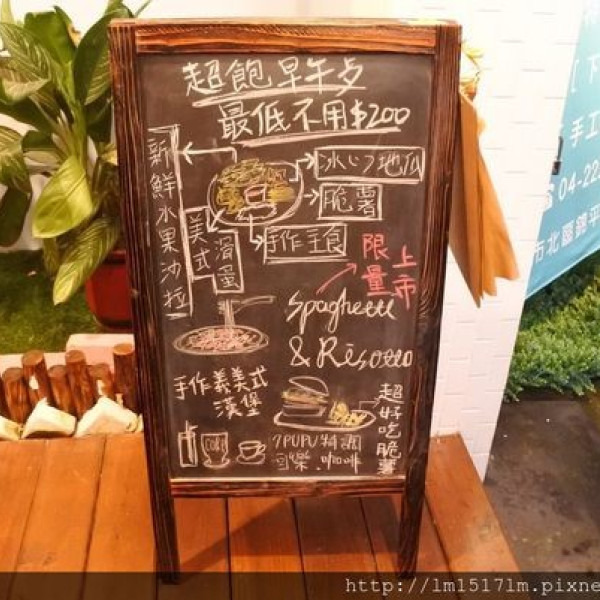 超飽早午夕
最低不用$200
新鮮水果沙拉
冰心地瓜
脆薯
美式滑蛋
手作主食
限量
上市
Spaghetti
& Risotto
手作義美式
漢堡
超好吃脆薯
PUPU特調
可樂.咖啡
[下
手工
04-22
市北區錦平
http://lm1517lm.pixne